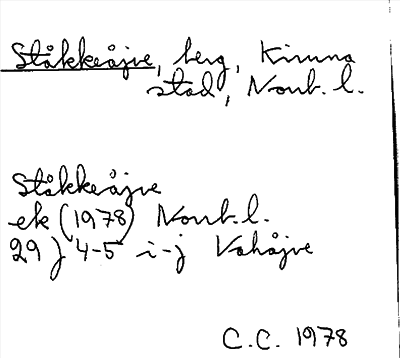 Ståkkeåjve, berg, Kiruna
stad, Norrb. l.
Ståkkeåjve
ek (1978) Norrb. l.
29 J 4-5 i-j Vahåjve
C.C. 1978